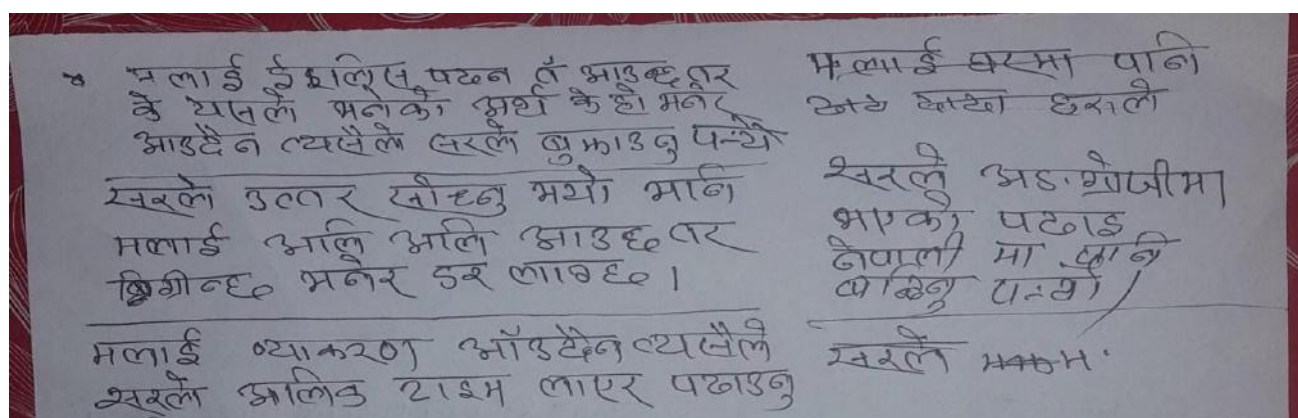 मलाई ईङलिस पढ्न त आउछ तर
के यसले भनेको अर्थ के हो भनेर
आउदैन त्यसैले सरले बुझाउनु पर्‍यो
सरले उत्तर सोध्नु भयो भनि
मलाई अलि अलि आउछ तर
बिग्रीन्छ भनेर डर लाग्छ।
मलाई व्याकरण आँउदैन त्यसैले
सरले अलिक टाइम लाएर पढाउनु
मलाई घरमा पनि
सरले अङग्रेजीमा
भएको पढाइ
नेपाली मा पनि
पर्‍यो
सरले